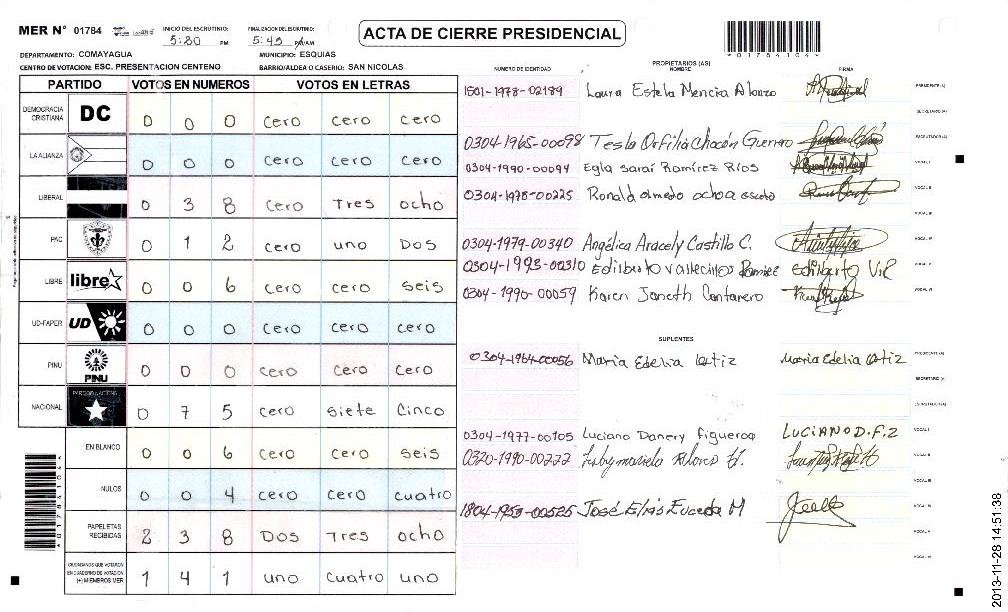 MER N° 01784
INICIO DEL ESCRUTINIO: 5:30 PM
FINALIZACION DEL ESCRUTINIO: 5:45 PM/AM
ACTA DE CIERRE PRESIDENCIAL
*01784104*
DEPARTAMENTO: COMAYAGUA MUNICIPIO: ESQUIAS
CENTRO DE VOTACION: ESC. PRESENTACION CENTENO BARRIO/ALDEA O CASERIO: SAN NICOLAS
PARTIDO VOTOS EN NUMEROS VOTOS EN LETRAS
DEMOCRACIA CRISTIANA DC 0 0 0 cero cero cero
LA ALIANZA 0 0 0 cero cero cero
LIBERAL 0 3 8 cero Tres ocho
PAC 0 1 2 cero uno Dos
LIBRE libre 0 0 6 cero cero seis
UD-FAPER UD 0 0 0 cero cero cero
PINU PINU 0 0 0 cero cero cero
NACIONAL PARTIDO NACIONAL 0 7 5 cero siete cinco
EN BLANCO 0 0 6 cero cero seis
NULOS 0 0 4 cero cero cuatro
PAPELETAS RECIBIDAS 2 3 8 Dos Tres ocho
CIUDADANOS QUE VOTARON EN CUADERNO DE VOTACION (+) MIEMBROS MER 1 4 1 uno cuatro uno
*01784104*
PROPIETARIOS (AS)
NUMERO DE IDENTIDAD NOMBRE FIRMA
1501-1978-02189 Laura Estela Mencia Alonzo PRESIDENTE (A)
SECRETARIO (A)
0304-1965-00098 Tesla Orfilia chacón Guerrero ESCRUTADOR (A)
0304-1990-00094 Egla sarai Ramírez Ríos VOCAL I
0304-1978-00225 Ronald olmedo ochoa escoto VOCAL II
VOCAL III
0304-1979-00340 Angélica Aracely Castillo C. VOCAL IV
0304-1993-00310 Edilberto vallecillos Ramirez Edilberto V.R VOCAL V
0304-1990-00059 Karen Janeth Cantarero VOCAL VI
SUPLENTES
0304-1964-00056 Maria Edelia Ortiz Maria Edelia Ortiz PRESIDENTE (A)
SECRETARIO (A)
ESCRUTADOR (A)
0304-1977-00105 Luciano Danery figueroa LUCIANO D.F.Z VOCAL I
0320-1990-00222 VOCAL II
VOCAL III
1804-1953-00525 José Elias Euceda M VOCAL IV
VOCAL V
VOCAL VI
2013-11-28 14:51:38